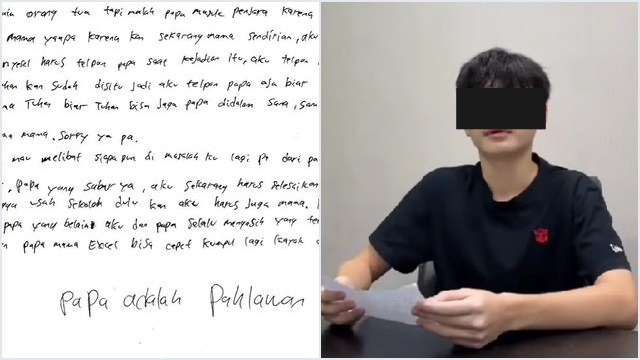 orang tua tapi malah papa masuk penjara karena
mama karena kan sekarang mama sendirian, aku
nyesel harus telpon papa saat kejadian itu, aku telpon
kan sudah disitu jadi aku telpon papa aja biar
Tuhan biar Tuhan bisa jaga papa didalam sana,
mama. Sorry ya pa.
mau melibat siapapun di masalah ku lagi pa dari
, papa yang sabar ya, aku sekarang harus selesaikan
usah sekolah dulu kan aku harus jaga mama.
papa yang belain aku dan papa selalu mengasih yang
papa mama Excel bisa cepet kumpul lagi kayak
papa adalah Pahlawan